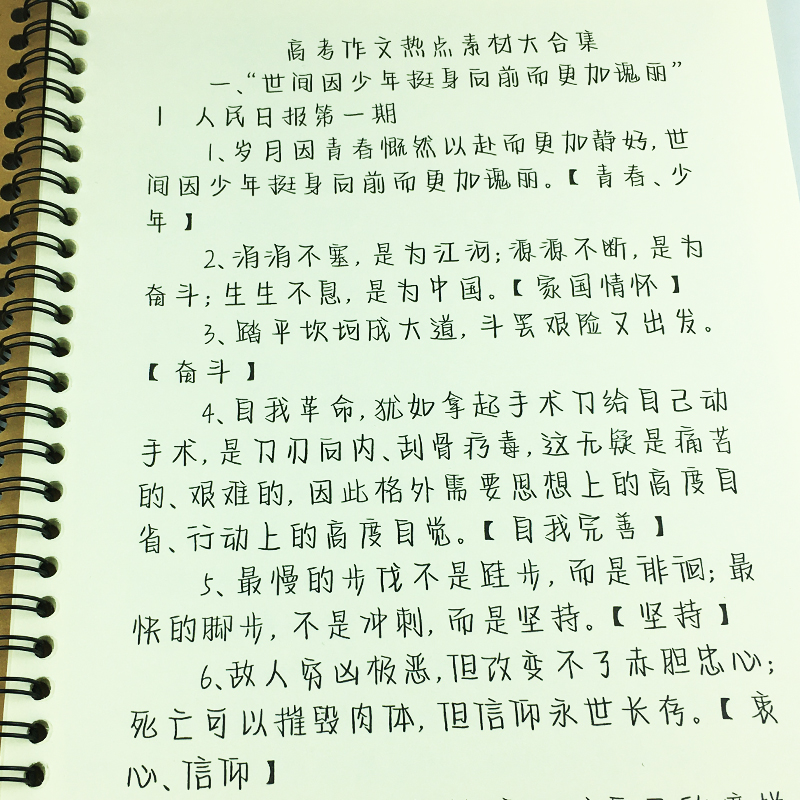 高考作文热点素材大合集
一、“世间因少年挺身向前而更加瑰丽”
| 人民日报第一期
1、岁月因青春慨然以赴而更加静好,世
间因少年挺身向前而更加瑰丽。【青春、少
年】
2、涓涓不塞,是为江河;源源不断,是为
奋斗;生生不息,是为中国。【家国情怀】
3、踏平坎坷成大道,斗罢艰险又出发。
【奋斗】
4、自我革命,犹如拿起手术刀给自己动
手术,是刀刃向内、刮骨疗毒,这无疑是痛苦
的、艰难的,因此格外需要思想上的高度自
省、行动上的高度自觉。【自我完善】
5、最慢的步伐不是跬步,而是徘徊;最
快的脚步,不是冲刺,而是坚持。【坚持】
6、敌人穷凶极恶,但改变不了赤胆忠心;
死亡可以摧毁肉体,但信仰永世长存。【衷
心、信仰】